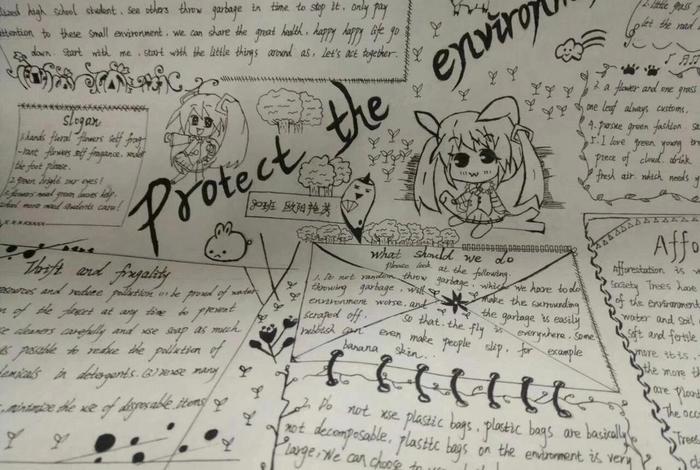 lized high school student. see others throw garbage in time to stop it. only pay
attention to these small environment. we can share the great health, happy happy life go
down. Start with me. start with the little things around as. Let's act together.
Protect the environm
slogan
1.hands floral flowers self frag-
rant flowers self fragance. under
the foot please.
2.power bright our eyes!
3.flowers need green leaves help.
school more need students care!
80班
欧阳艳英
2.little grass
let the road
2. a flower and one grass
one leaf always customs.
4. pursue green fashion
5.I love green young
piece of cloud. drink
fresh air. which needs
Thrift and frugality
resources and reduce pollution. be proud of water
n of the forest at any time to prevent
se cleaners carefully and use soap as much
as possible to reduce the pollution of
chemicals in detergents. (3) reuse many
minimize the use of disposable items
What should we do
Please look at the following
1. Do not random throw garbage, which we have to do
throwing garbage, will make the surrounding
environment worse. and the garbage is easily
scraped off. so that. the fly is everywhere. some
rubbish can even make people slip, for example
banana skin...
2. Do not use plastic bags, plastic bags are basically
not decomposable, plastic bags on the environment is very
large, We can choose to
Affo
Afforestation is
society Trees have
of the environment
water and soil
soft and fertile
more it is.
the more th
are plant
The acco
Trees